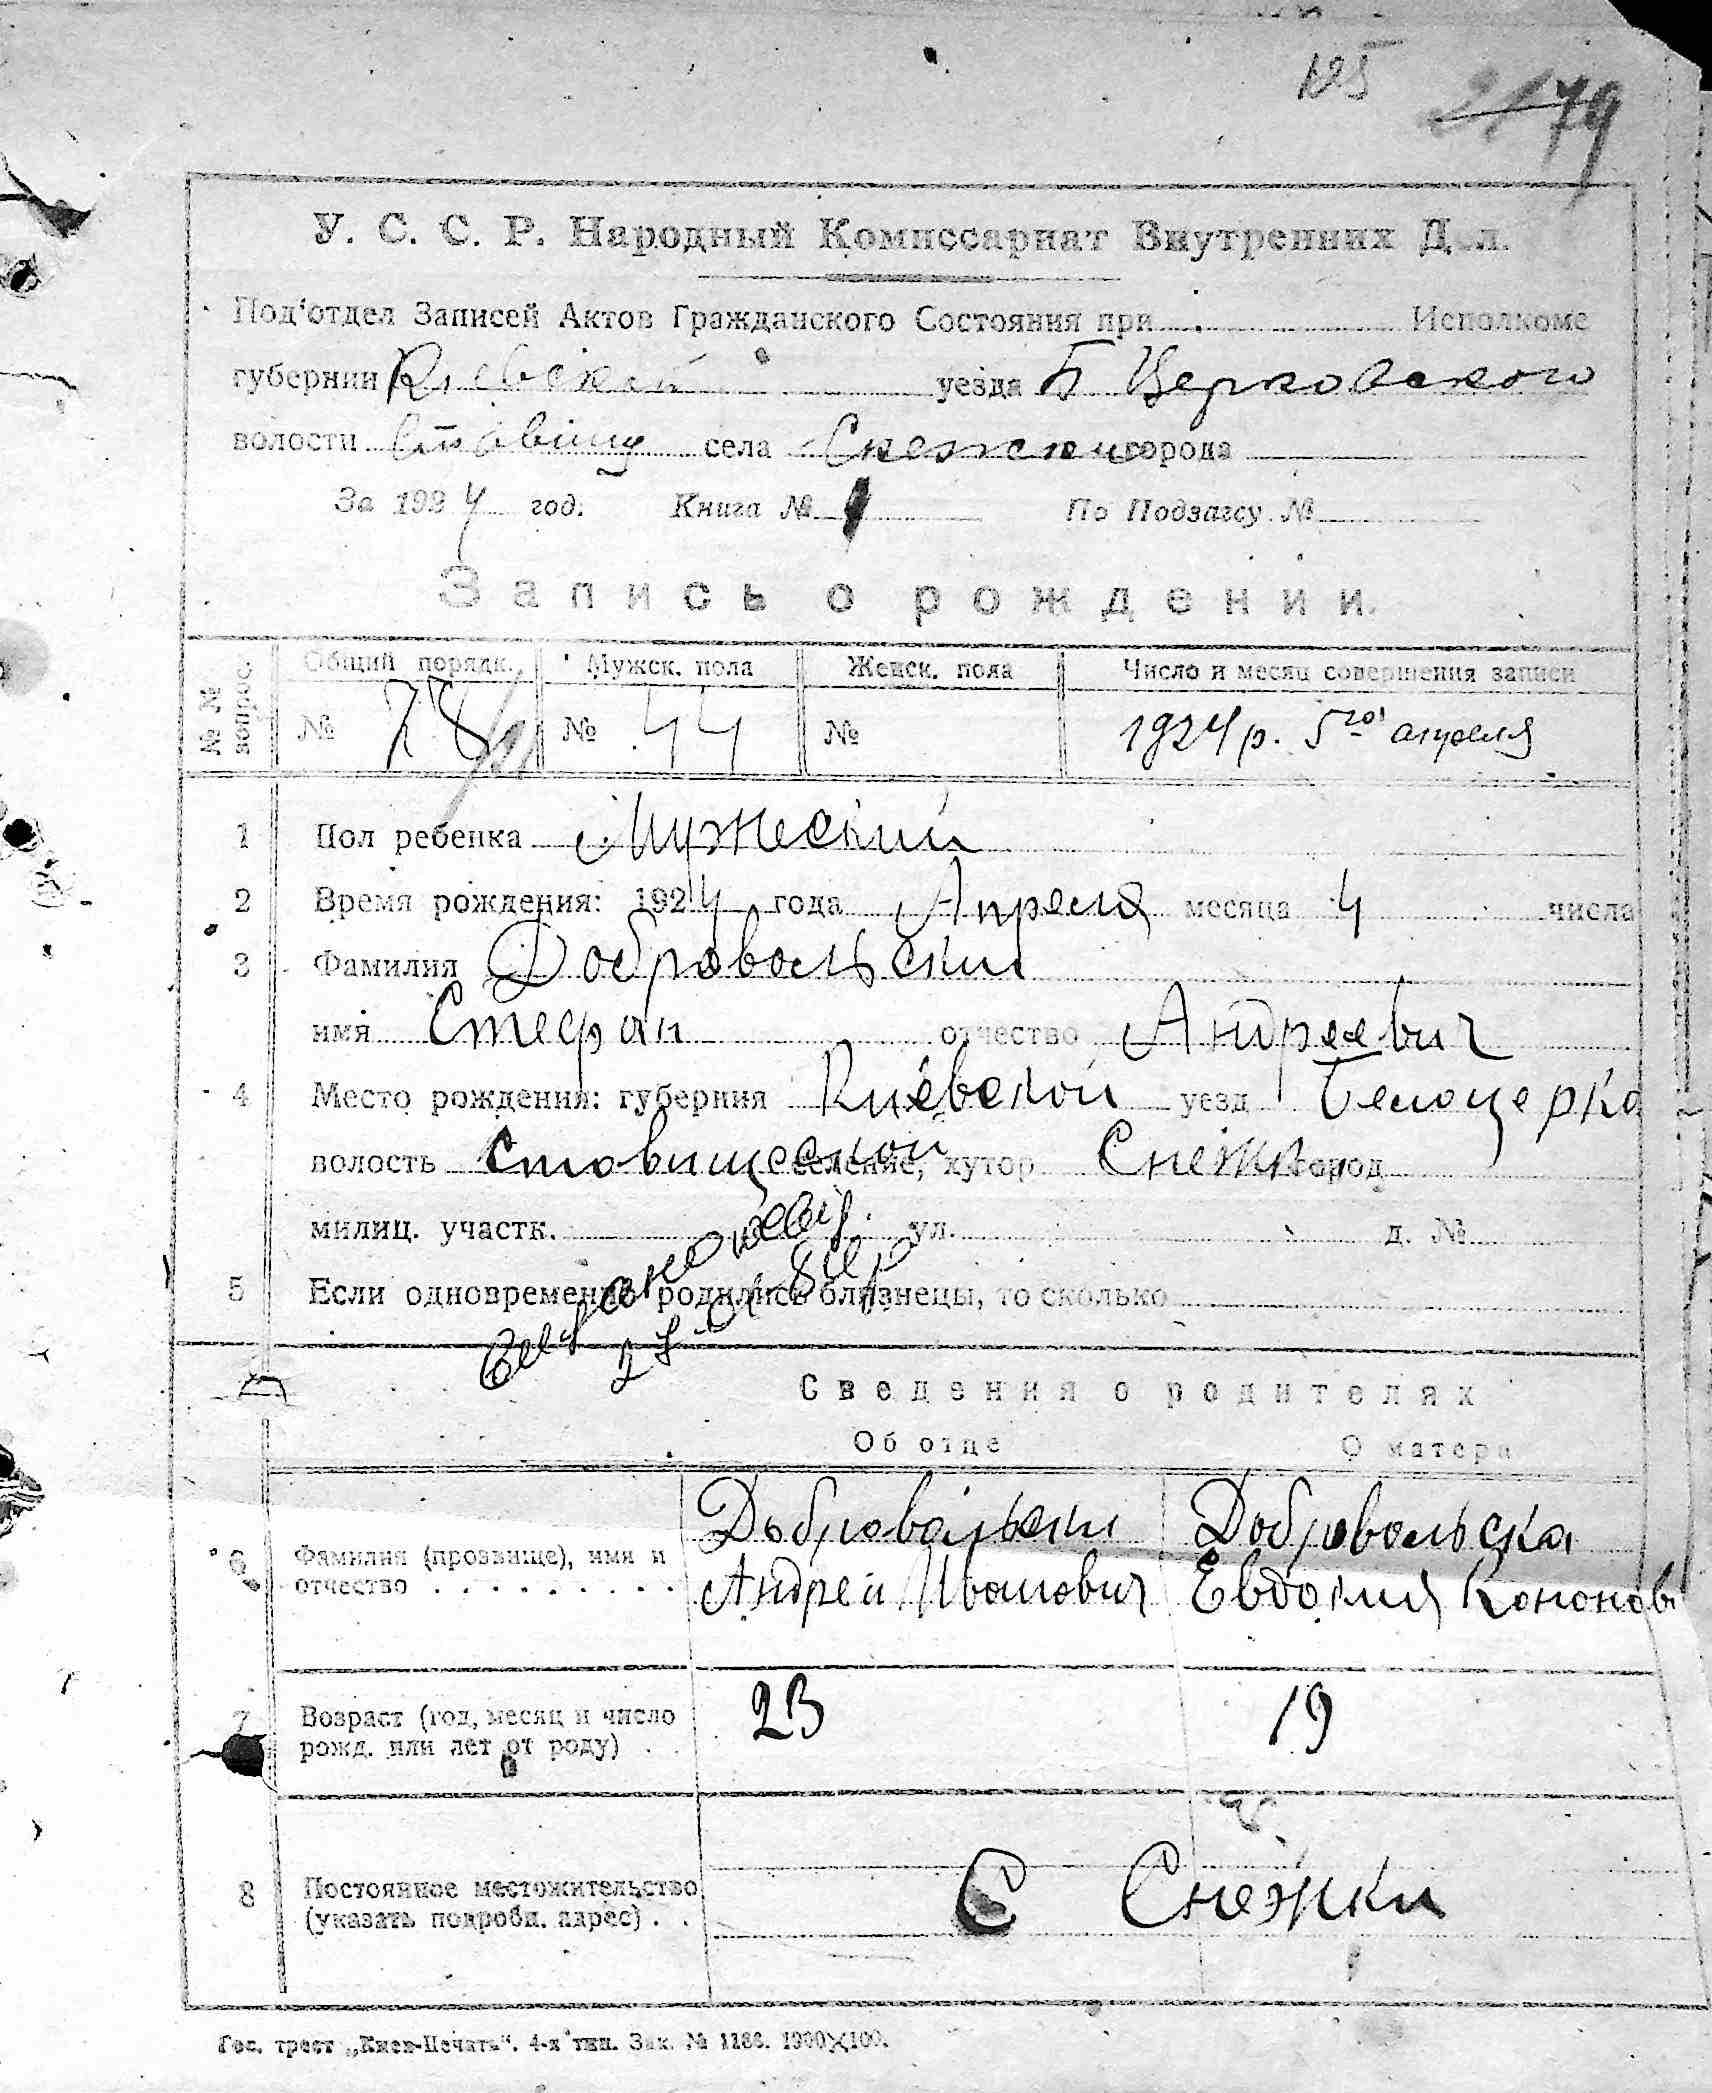 195
2179
У. С. С. Р. Народный Комиссариат Внутренних Дел.
Под'отдел Записей Актов Гражданского Состояния при Исполкоме
губернии Киевской уезда Б Церковского
волости Ставищу села Снежки города
За 1924 год. Книга № 1 По Подзагсу №
Запись о рождении.
№ № вопрос. Общий порядк. Мужск. пола Женск. пола Число и месяц совершения записи
№ 78 № 44 № 1924 р. 5го апреля
1 Пол ребенка Мужеский
2 Время рождения: 1924 года Апреля месяца 4 числа
3 Фамилия Добровольский
имя Стефан отчество Андреевич
4 Место рождения: губерния Киевской уезд Белоцерка
волость Ставищеской селение, хутор Снежки город
милиц. участк. ул. д. №
5 Если одновременно родились близнецы, то сколько
Сведения о родителях
Об отце О матери
6 Фамилия (прозвище), имя и отчество Добровольски Добровольска
Андрей Иванович Евдокия Кононов
7 Возраст (год, месяц и число рожд. или лет от роду) 23 19
8 Постоянное местожительство (указать подробн. адрес) С Снежки
Гос. трест „Киев-Печать“. 4-я тип. Зак. № 1186. 1000×100.